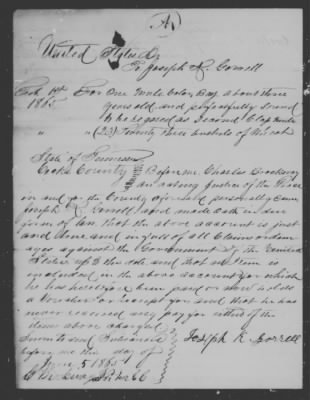 (A)
United States Dr
To Joseph K. Correll
1865 For One mule Color Bay about three
years old and perfectly sound
to be classed as second Class mule
" " (23) Twenty three bushels of Wheat
State of Tennessee
Cocke County Before me Charles Brockway
an acting Justice of the Peace
in and for the County aforesaid personally came
Joseph K. Correll and made oath in due
form of law that the above account is just
and true and in full of all Claims or dam
ages against the Government of the United
States up to this date and that no Item is
included in the above account for which
he has heretofore been paid or now holds
a Voucher or receipt and that he has
never received any pay for either of the
items above charged
Sworn to and Subscribed Joseph K. Correll
before me this day of
5 1865